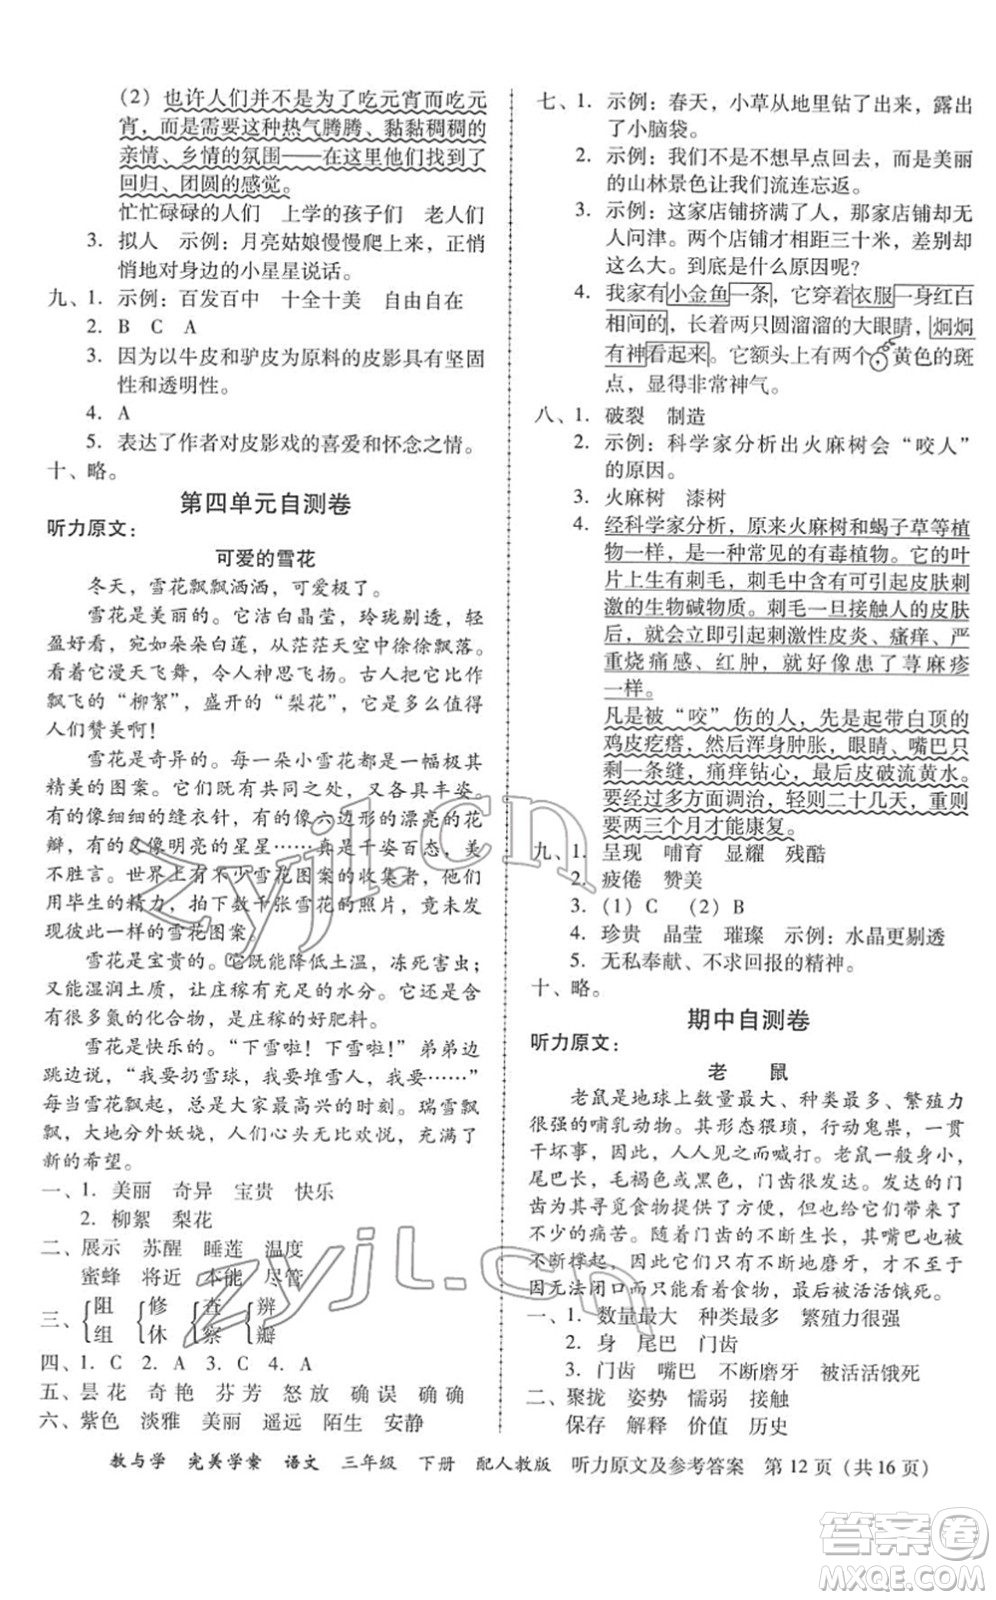 (2) 也许人们并不是为了吃元宵而吃元
宵,而是需要这种热气腾腾、黏黏稠稠的
亲情、乡情的氛围——在这里他们找到了
回归、团圆的感觉。
忙忙碌碌的人们 上学的孩子们 老人们
3. 拟人 示例:月亮姑娘慢慢爬上来,正悄
悄地对身边的小星星说话。
九、1. 示例:百发百中 十全十美 自由自在
2. B C A
3. 因为以牛皮和驴皮为原料的皮影具有坚固
性和透明性。
4. A
5. 表达了作者对皮影戏的喜爱和怀念之情。
十、略。
第四单元自测卷
听力原文:
可爱的雪花
冬天,雪花飘飘洒洒,可爱极了。
雪花是美丽的。它洁白晶莹,玲珑剔透,轻
盈好看,宛如朵朵白莲,从茫茫天空中徐徐飘落。
看着它漫天飞舞,叫人神思飞扬。古人把它比作
飘飞的“柳絮”,盛开的“梨花”,它是多么值得
人们赞美啊!
雪花是奇异的。每一朵小雪花都是一幅极其
精美的图案。它们既有共同之处,又各具丰姿。
有的像细细的缝衣针,有的像六边形的漂亮的花
瓣,有的又像明亮的星星……真是千姿百态,美
不胜言。世界上有不少雪花图案的收集者,他们
用毕生的精力,拍下数千张雪花的照片,竟未见
过两片完全一样的雪花图案。
雪花是宝贵的。它既能降低土温,冻死害虫;
又能湿润土质,让庄稼有充足的水分。雪花中含有
很多氮的化合物,是庄稼的好肥料。
雪花是快乐的。“下雪啦!下雪啦!”弟弟边
跳边说,“我要扔雪球,我要堆雪人,我要……”
每当雪花飘起,都是大家最高兴的时刻。瑞雪飘
飘,大地分外妖娆,人们心头比欢悦,充满了
新的希望。
一、1. 美丽 奇异 宝贵 快乐
2. 柳絮 梨花
二、展示 苏醒 睡莲 温度
蜜蜂 将近 本能 尽管
三、阻 修 查 辨
组 休 察 瓣
四、1. C 2. A 3. C 4. A
五、昙花 奇艳 芬芳 怒放 确误 确确
六、紫色 淡雅 美丽 遥远 陌生 安静
七、1. 示例:春天,小草从地里钻了出来,露出
了小脑袋。
2. 示例:我们不是不想早点回去,而是美丽
的山林景色让我们流连忘返。
3. 示例:这家店铺挤满了人,那家店铺却无
人问津。两个店铺才相距三十米,差别却这
么大。到底是什么原因呢?
4. 我家有小金鱼一条,它穿着衣服一身红白
相间的,长着两只圆溜溜的大眼睛,炯炯
有神看起来。它额头上有两个黄色的斑
点,显得非常神气。
八、1. 破裂 制造
2. 示例:科学家分析出火麻树会“咬人”
的原因。
3. 火麻树 漆树
4. 经科学家分析,原来火麻树和蝎子草等植
物一样,是一种常见的有毒植物。它的叶
片上生有刺毛,刺毛中含有可引起皮肤刺
激的生物碱物质。刺毛一旦接触人的皮肤
后,就会立即引起刺激性皮炎、瘙痒、严
重烧痛感、红肿,就好像患了荨麻疹
一样。
凡是被“咬”伤的人,先是起带白顶的
鸡皮疙瘩,然后浑身肿胀,眼睛、嘴巴只
剩一条缝,痛痒钻心,最后皮破流黄水。
要经过多方面调治,轻则二十几天,重则
要两三个月才能康复。
九、1. 呈现 哺育 显耀 残酷
2. 疲倦 赞美
3. (1) C (2) B
4. 珍贵 晶莹 璀璨 示例:水晶更剔透
5. 无私奉献、不求回报的精神。
十、略。
期中自测卷
听力原文:
老 鼠
老鼠是地球上数量最大、种类最多、繁殖力
很强的哺乳动物。其形态猥琐,行动鬼祟,一贯
干坏事,因此,人人见之而喊打。老鼠一般身小,
尾巴长,毛褐色或黑色,门齿很发达。发达的门
齿为老鼠吃食物提供了方便,但也给它们带来了
不少的痛苦。随着门齿的不断生长,它们的嘴巴
不断撑起,因此它们只能不断地磨牙,否则就会
因无法闭口而只能看着食物,被活活饿死。
一、1. 数量最大 种类最多 繁殖力很强
2. 身 尾巴 门齿
3. 门齿 嘴巴 不断磨牙 被活活饿死
二、聚拢 姿势 懦弱 接触
保存 解释 价值 历史
教与学 完美学案 语文 三年级 下册 配人教版 听力原文及参考答案 第 12 页 (共 16 页)
zyjl.cn
zyjl.cn
答案圈
MXQE.COM